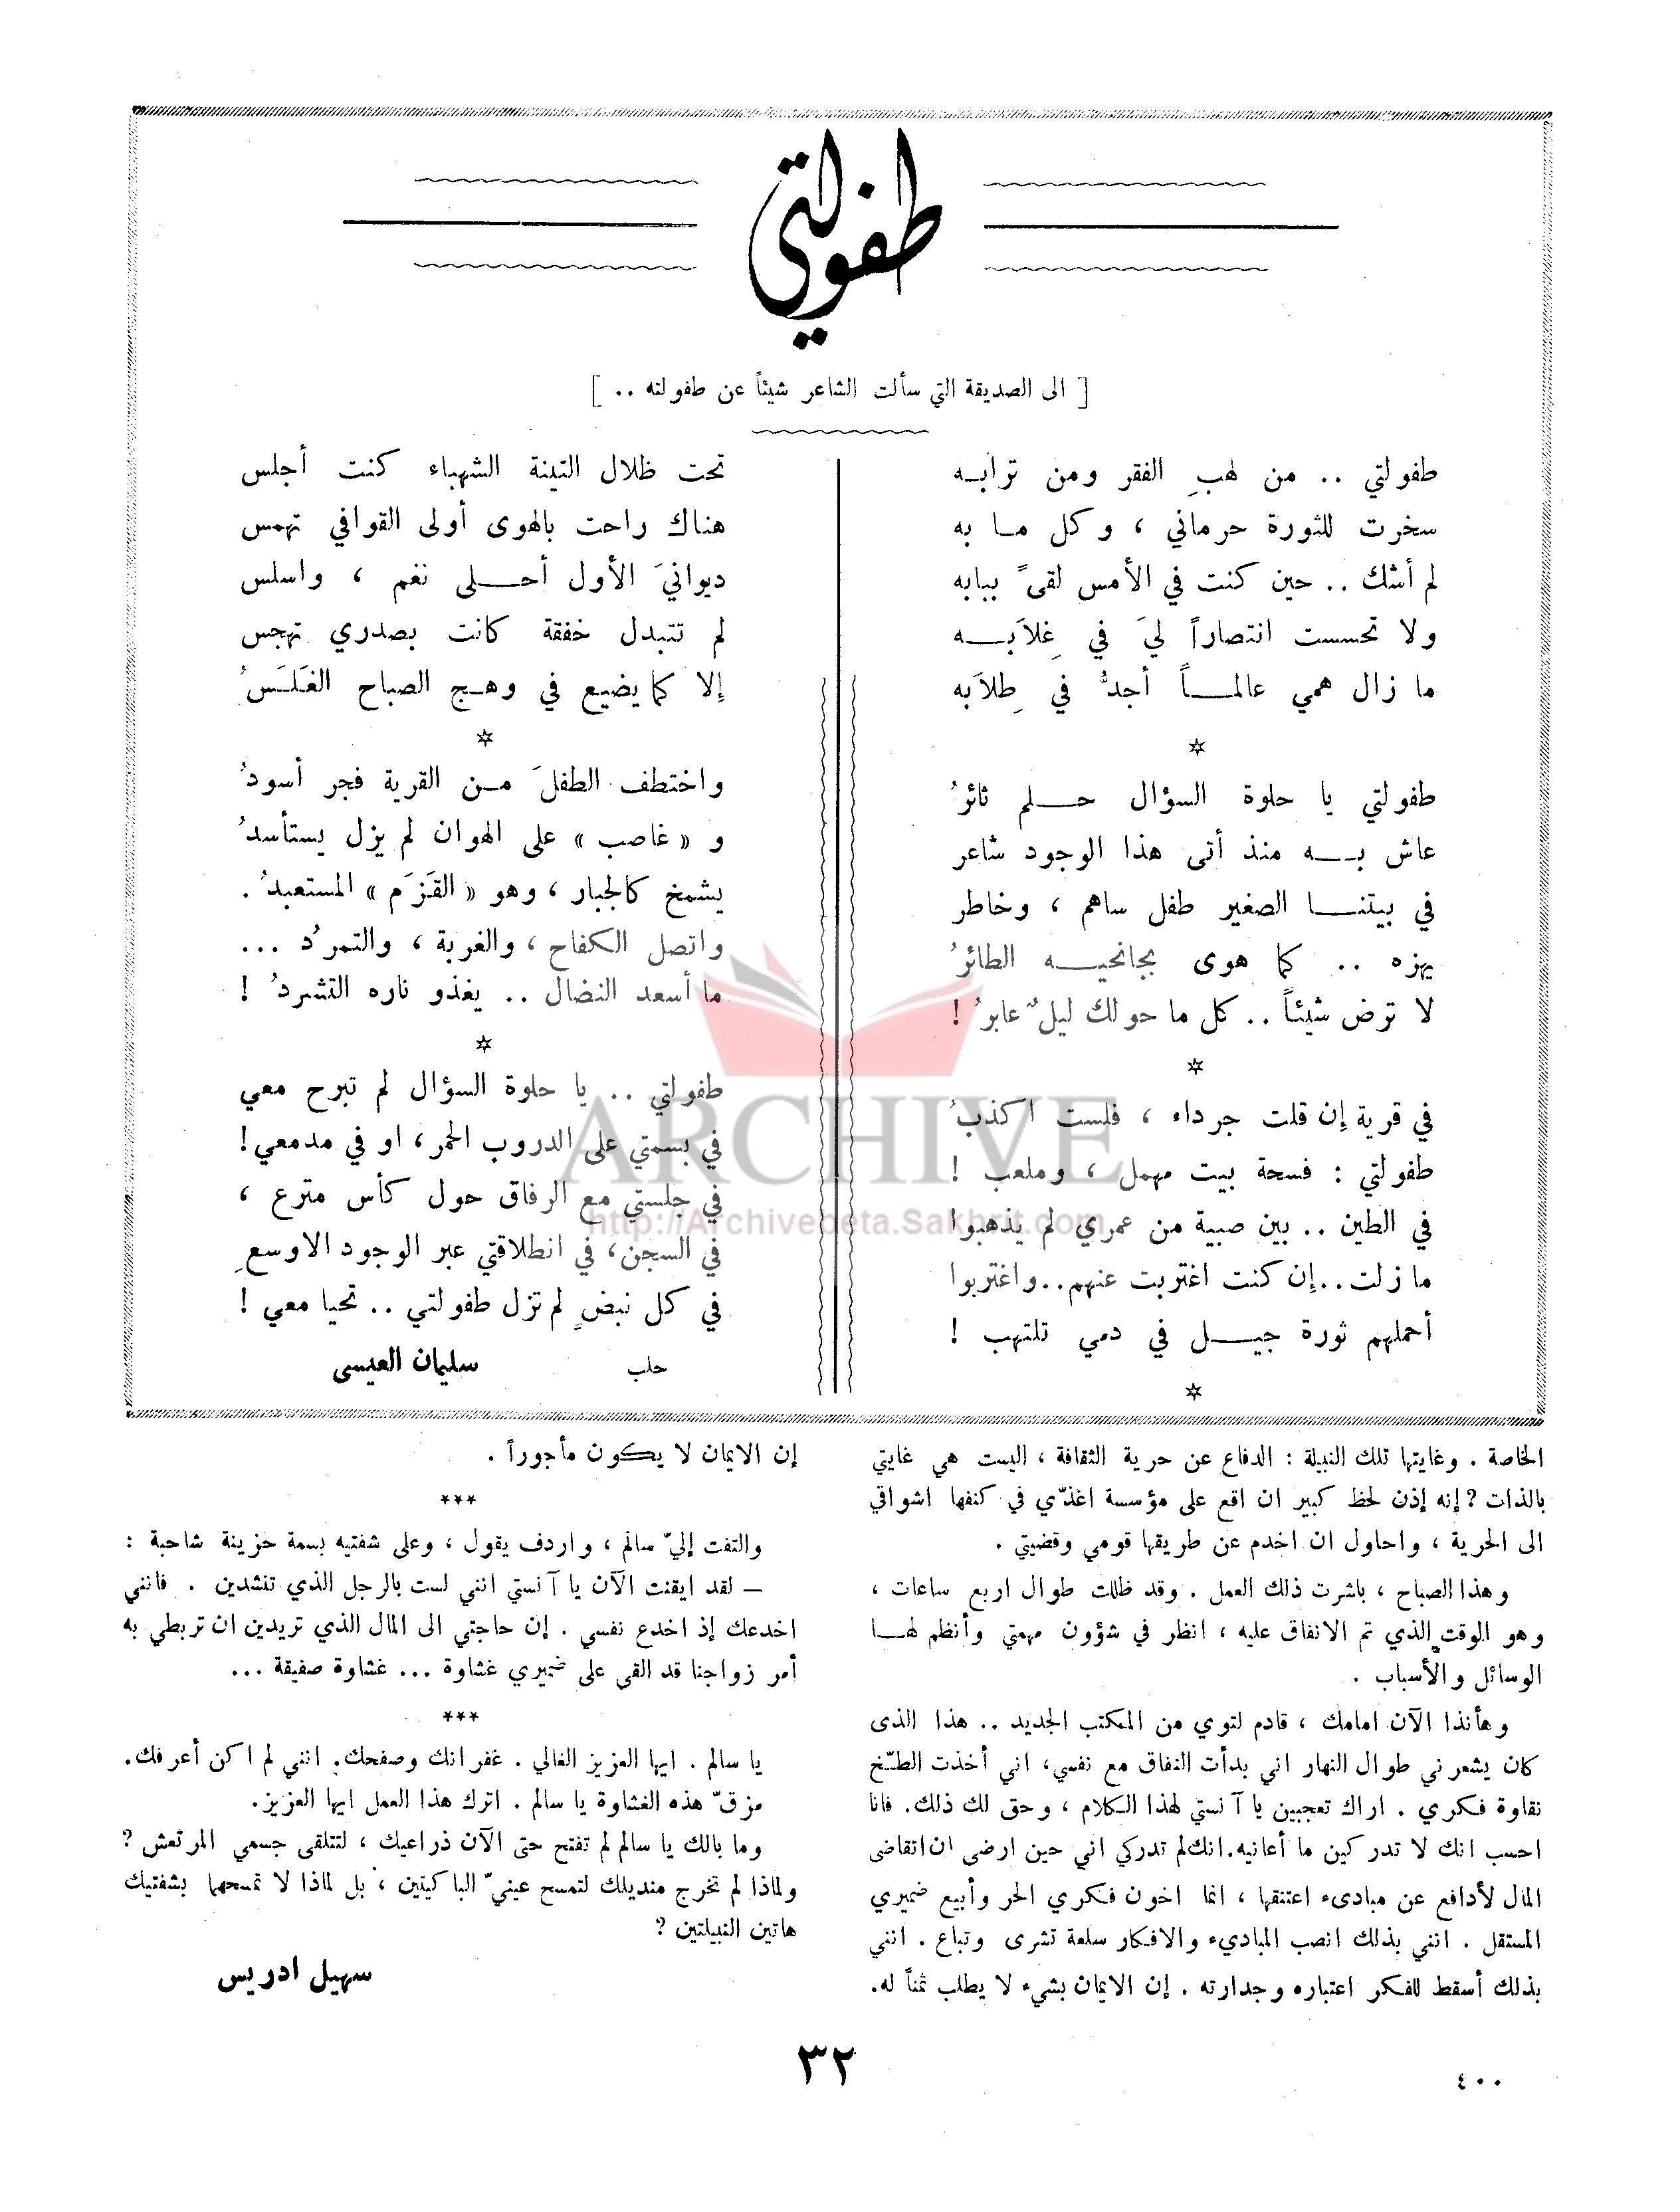 طفولتي
[ الى الصديقة التي سألت الشاعر شيئاً عن طفولته .. ]
طفولتي .. من لهبِ الفقر ومن ترابـه
سخرت للثورة حرماني ، وكل مـا به
لم أشك .. حين كنت في الأمس لقىً ببابه
ولا تحسست انتصاراً ليَ في غِلاَبـــه
ما زال همي عالمـــاً أجدُّ في طِلاَبه
☆
طفولتي يا حلوة السؤال حـــلم ثائرُ
عاش بـــه منذ أتى هذا الوجود شاعر
في بيتنـــا الصغير طفل ساهم ، وخاطر
يهزه .. كما هوى بجانحيـــه الطائرُ
لا ترض شيئاً .. كل ما حولك ليلٌ عابرُ !
☆
في قرية إن قلت جرداء ، فلست اكذبُ
طفولتي : فسحة بيت مهمل ، وملعب !
في الطين .. بين صبية من عمري لم يذهبوا
ما زلت..إن كنت اغتربت عنهم..واغتربوا
أحملهم ثورة جيـــل في دمي تلتهب !
☆
تحت ظلال التينة الشهباء كنت أجلس
هناك راحت بالهوى أولى القوافي تهمس
ديوانيَ الأول أحـــلى نغم ، واسلس
لم تتبدل خفقة كانت بصدري تهجس
إلا كما يضيع في وهـج الصباح الغَلَسُ
☆
واختطف الطفلَ مـن القرية فجر أسودُ
و « غاصب » على الهوان لم يزل يستأسدُ
يشمخ كالجبار ، وهو « القَزَم » المستعبدُ .
واتصل الكفاح ، والغربة ، والتمرُد ...
ما أسعد النضال .. يغذو ناره التشردُ !
☆
طفولتي .. يا حلوة السؤال لم تبرح معي
في بسمتي على الدروب الحمر ، او في مدمعي!
في جلستي مع الرفاق حول كأس مترع ،
في السجن، في انطلاقتي عبر الوجود الاوسعِ
في كل نبضٍ لم تزل طفولتي .. تحيا معي !
حلب سليمان العيسى
ARCHIVE
http://Archivebeta.Sakhrit.com
الخاصة . وغايتها تلك النبيلة : الدفاع عن حرية الثقافة ، اليست هي غايتي
بالذات ? إنه إذن لحظ كبير ان اقع على مؤسسة اغذّي في كنفها اشواقي
الى الحرية ، واحاول ان اخدم عن طريقها قومي وقضيتي .
وهذا الصباح ، باشرت ذلك العمل . وقد ظللت طوال اربع ساعات ،
وهو الوقت الذي تم الاتفاق عليه ، انظر في شؤون مهمتي وأنظم لهـا
الوسائل والأسباب .
وهأنذا الآن امامك ، قادم لتوي من المكتب الجديد .. هذا الذى
كان يشعرني طوال النهار اني بدأت النفاق مع نفسي، اني أخذت الطّخ
نقاوة فكري . اراك تعجبين يا آنستي لهذا الكلام ، وحق لك ذلك. فانا
احسب انك لا تدركين ما أعانيه.انك لم تدركي اني حين ارضى ان اتقاضى
المال لأدافع عن مبادىء اعتنقها ، انما اخون فكري الحر وأبيع ضميري
المستقل . انني بذلك انصب المباديء والافكار سلعة تشرى وتباع . انني
بذلك أسقط للفكر اعتباره وجدارته . إن الايمان بشيء لا يطلب ثمناً له.
إن الايمان لا يكون مأجوراً .
***
والتفت إليّ سالم ، واردف يقول ، وعلى شفتيه بسمة حزينة شاحبة :
– لقد ايقنت الآن يا آنستي انني لست بالرجل الذي تنشدين . فانني
اخدعك إذ اخدع نفسي . إن حاجتي الى المال الذي تريدين ان تربطي به
أمر زواجنا قد القى على ضميري غشاوة ... غشاوة صفيقة ...
***
يا سالم . ايها العزيز الغالي . غفرانك وصفحك. انني لم اكن أعرفك.
مزقّ هذه الغشاوة يا سالم . اترك هذا العمل ايها العزيز.
وما بالك يا سالم لم تفتح حتى الآن ذراعيك ، لتتلقى جسمي المرتعش ?
ولماذا لم تخرج منديلك لتمسح عينيّ الباكيتين ، بل لماذا لا تمسحهما بشفتيك
هاتين النبيلتين ?
سهيل ادريس
٣٢
٤٠٠